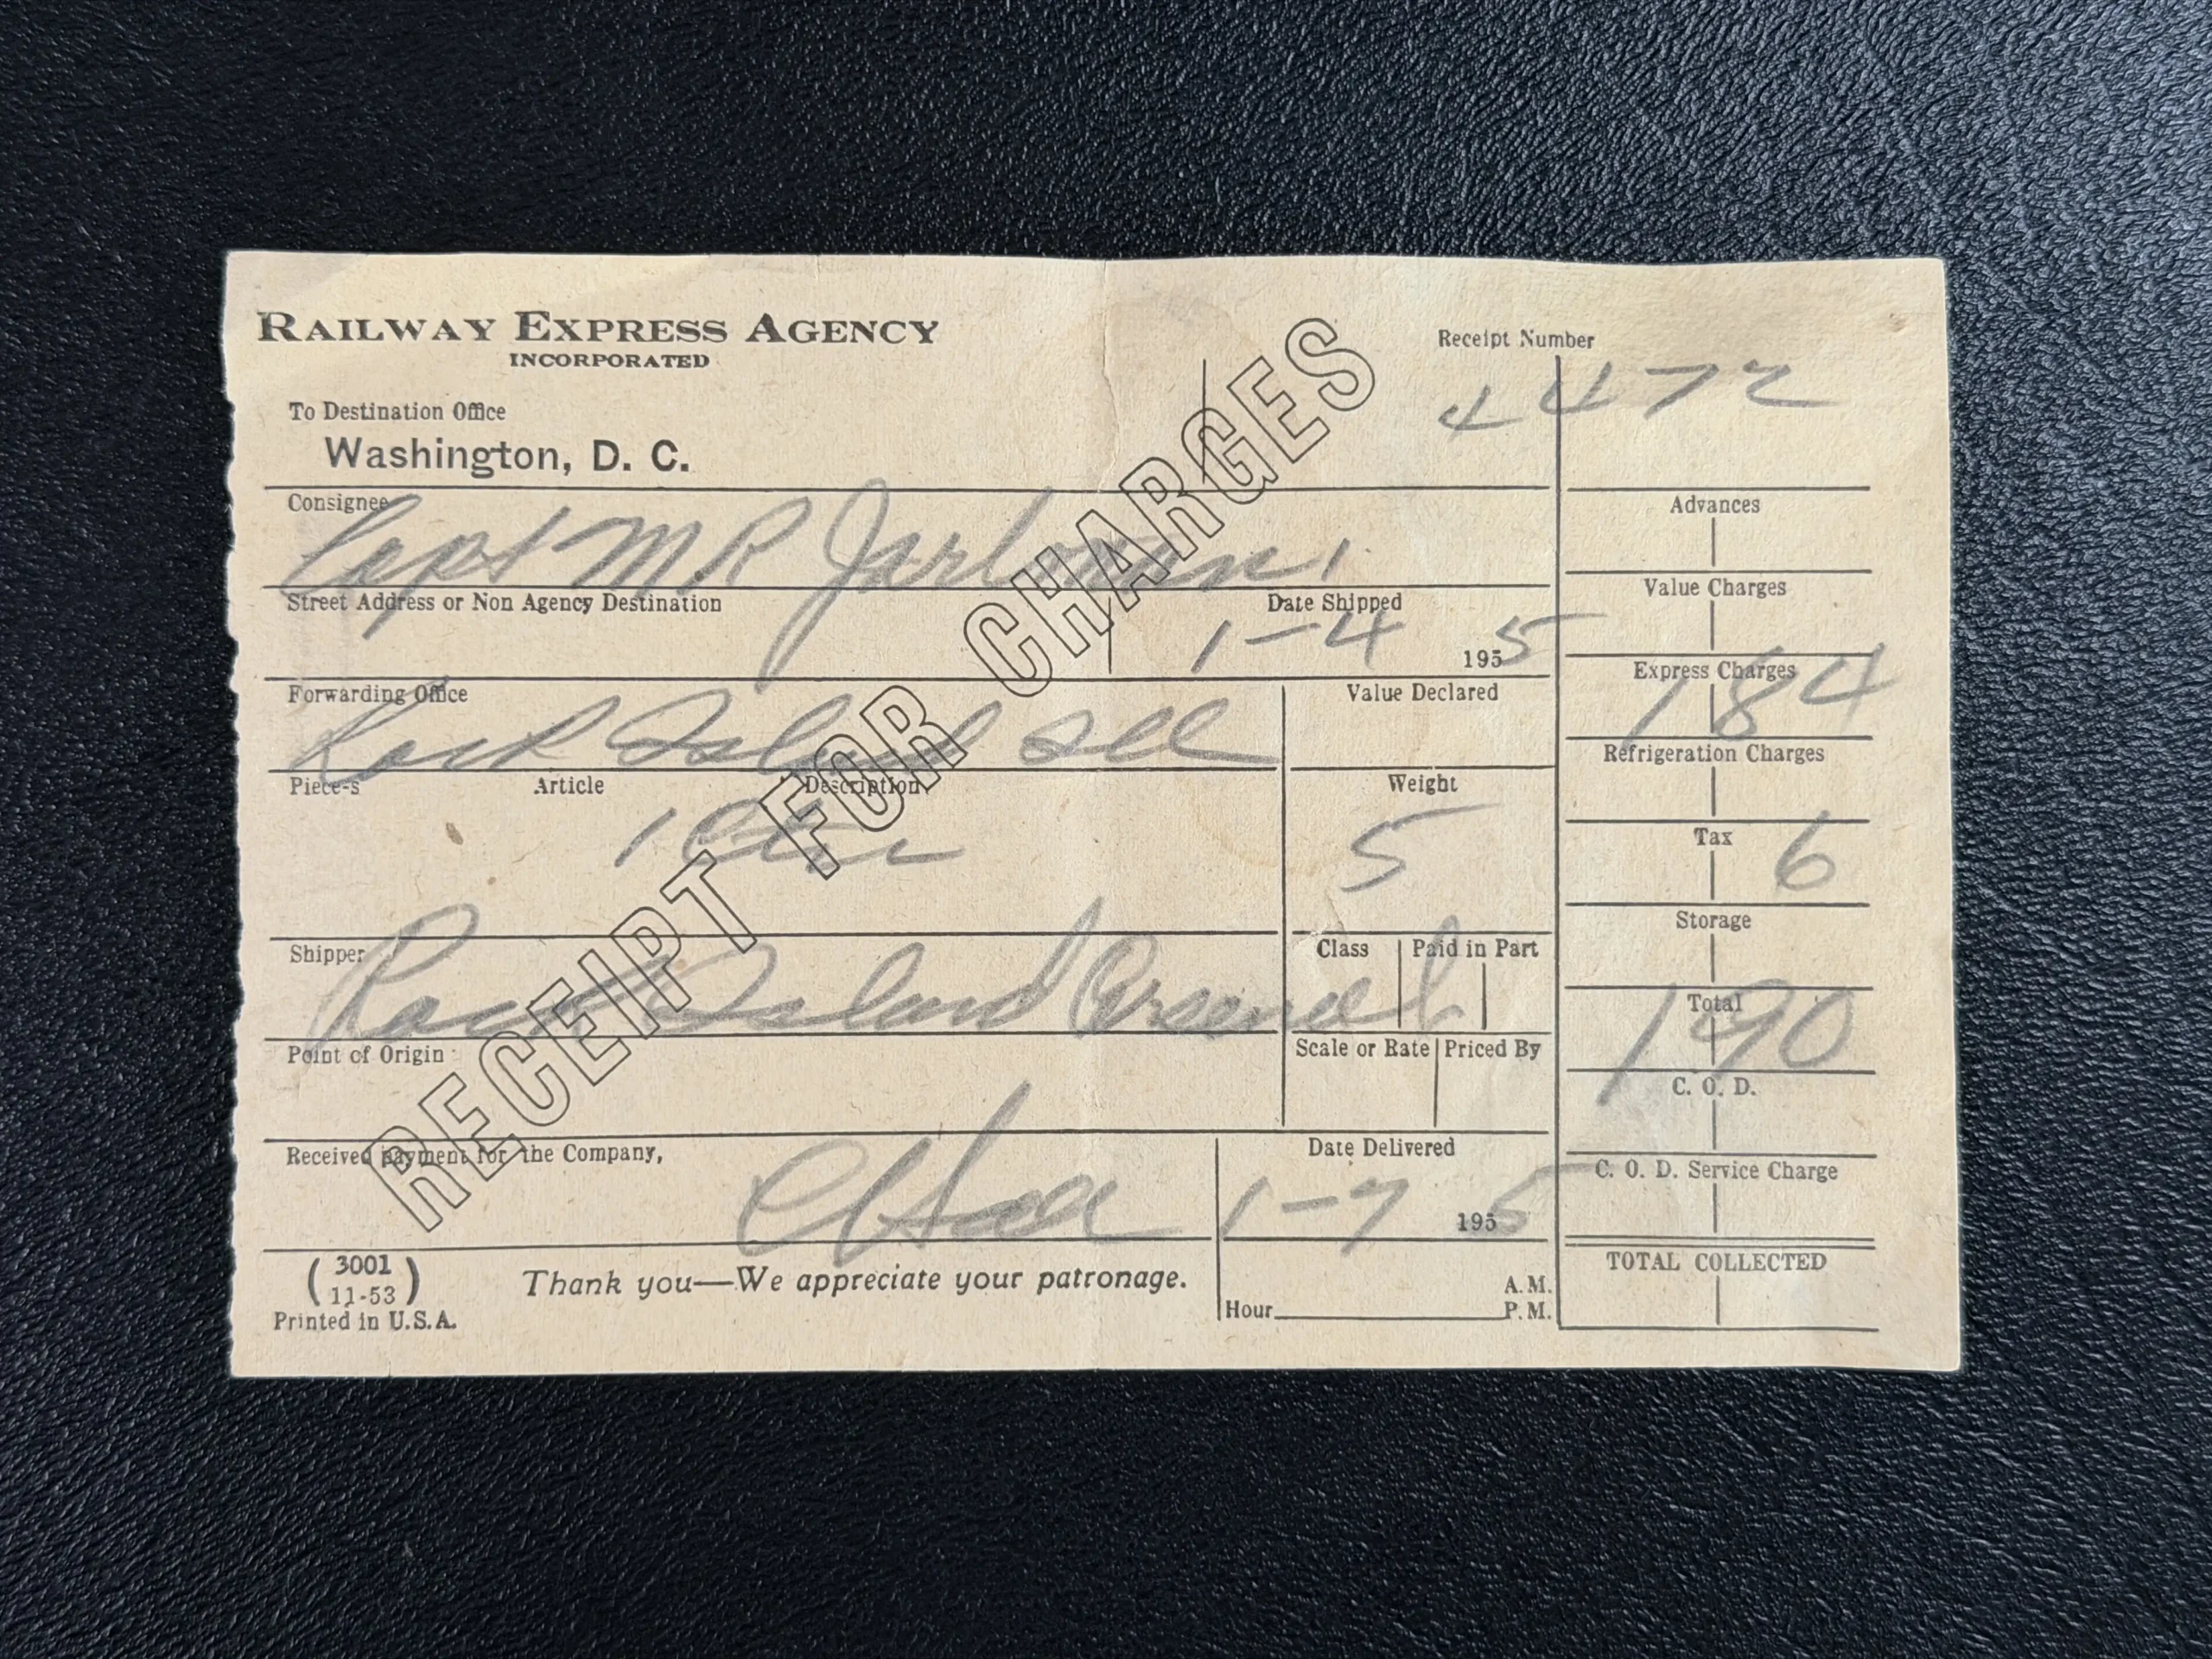 RAILWAY EXPRESS AGENCY
INCORPORATED
Receipt Number
4472
To Destination Office
Washington, D. C.
Consignee
Capt M R
Street Address or Non Agency Destination
Date Shipped
1-4 1955
Forwarding Office
Rock Island Ill
Value Declared
Piece-s Article Description
1 Ctn
Weight
5
Shipper
Rock Island Arsenal
Class Paid in Part
Point of Origin
Scale or Rate Priced By
Received payment for the Company,
Date Delivered
1-7 1955
(3001 11-53)
Printed in U.S.A.
Thank you—We appreciate your patronage.
Hour A.M. P.M.
Advances
Value Charges
Express Charges
184
Refrigeration Charges
Tax 6
Storage
Total
190
C. O. D.
C. O. D. Service Charge
TOTAL COLLECTED
RECEIPT FOR CHARGES